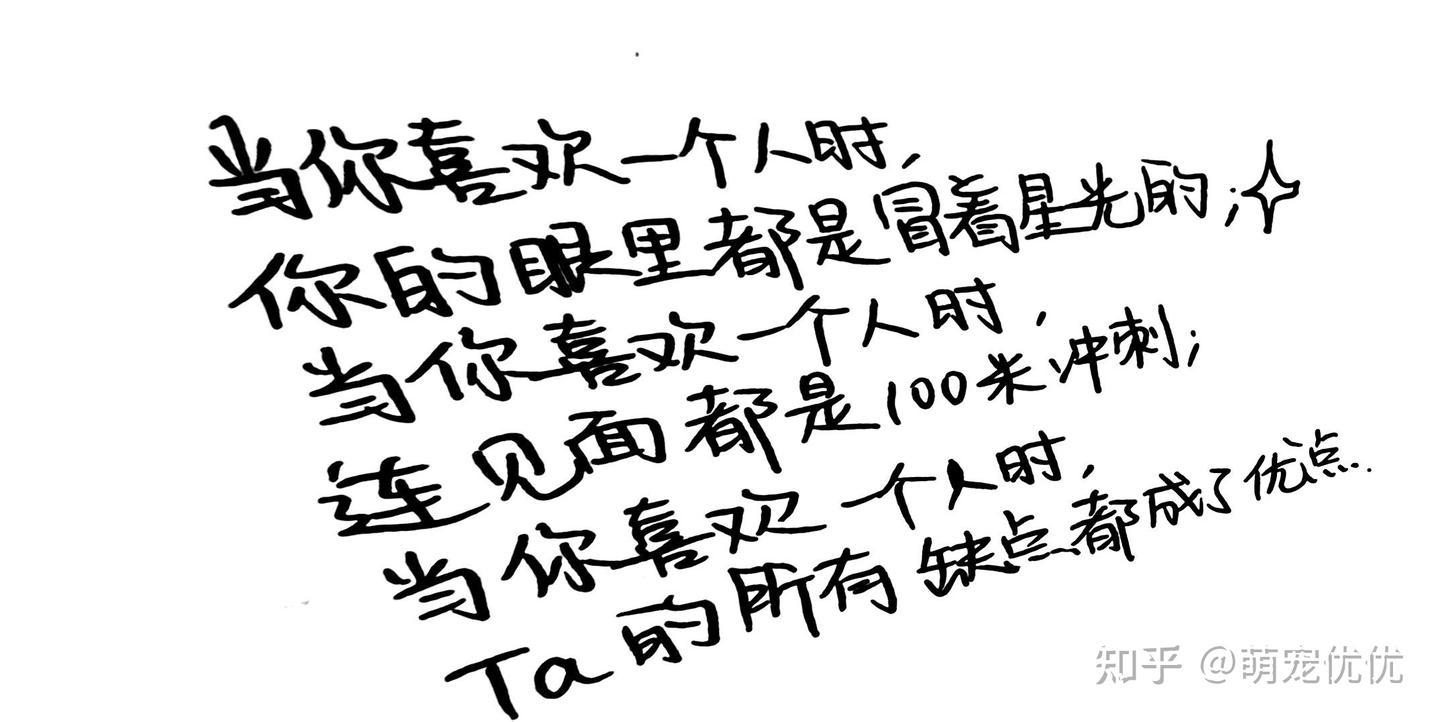 当你喜欢一个人时，
你的眼里都是冒着星光的；
当你喜欢一个人时，
连见面都是100米冲刺；
当你喜欢一个人时，
Ta的所有缺点都成了优点.
知乎 @萌宠优优